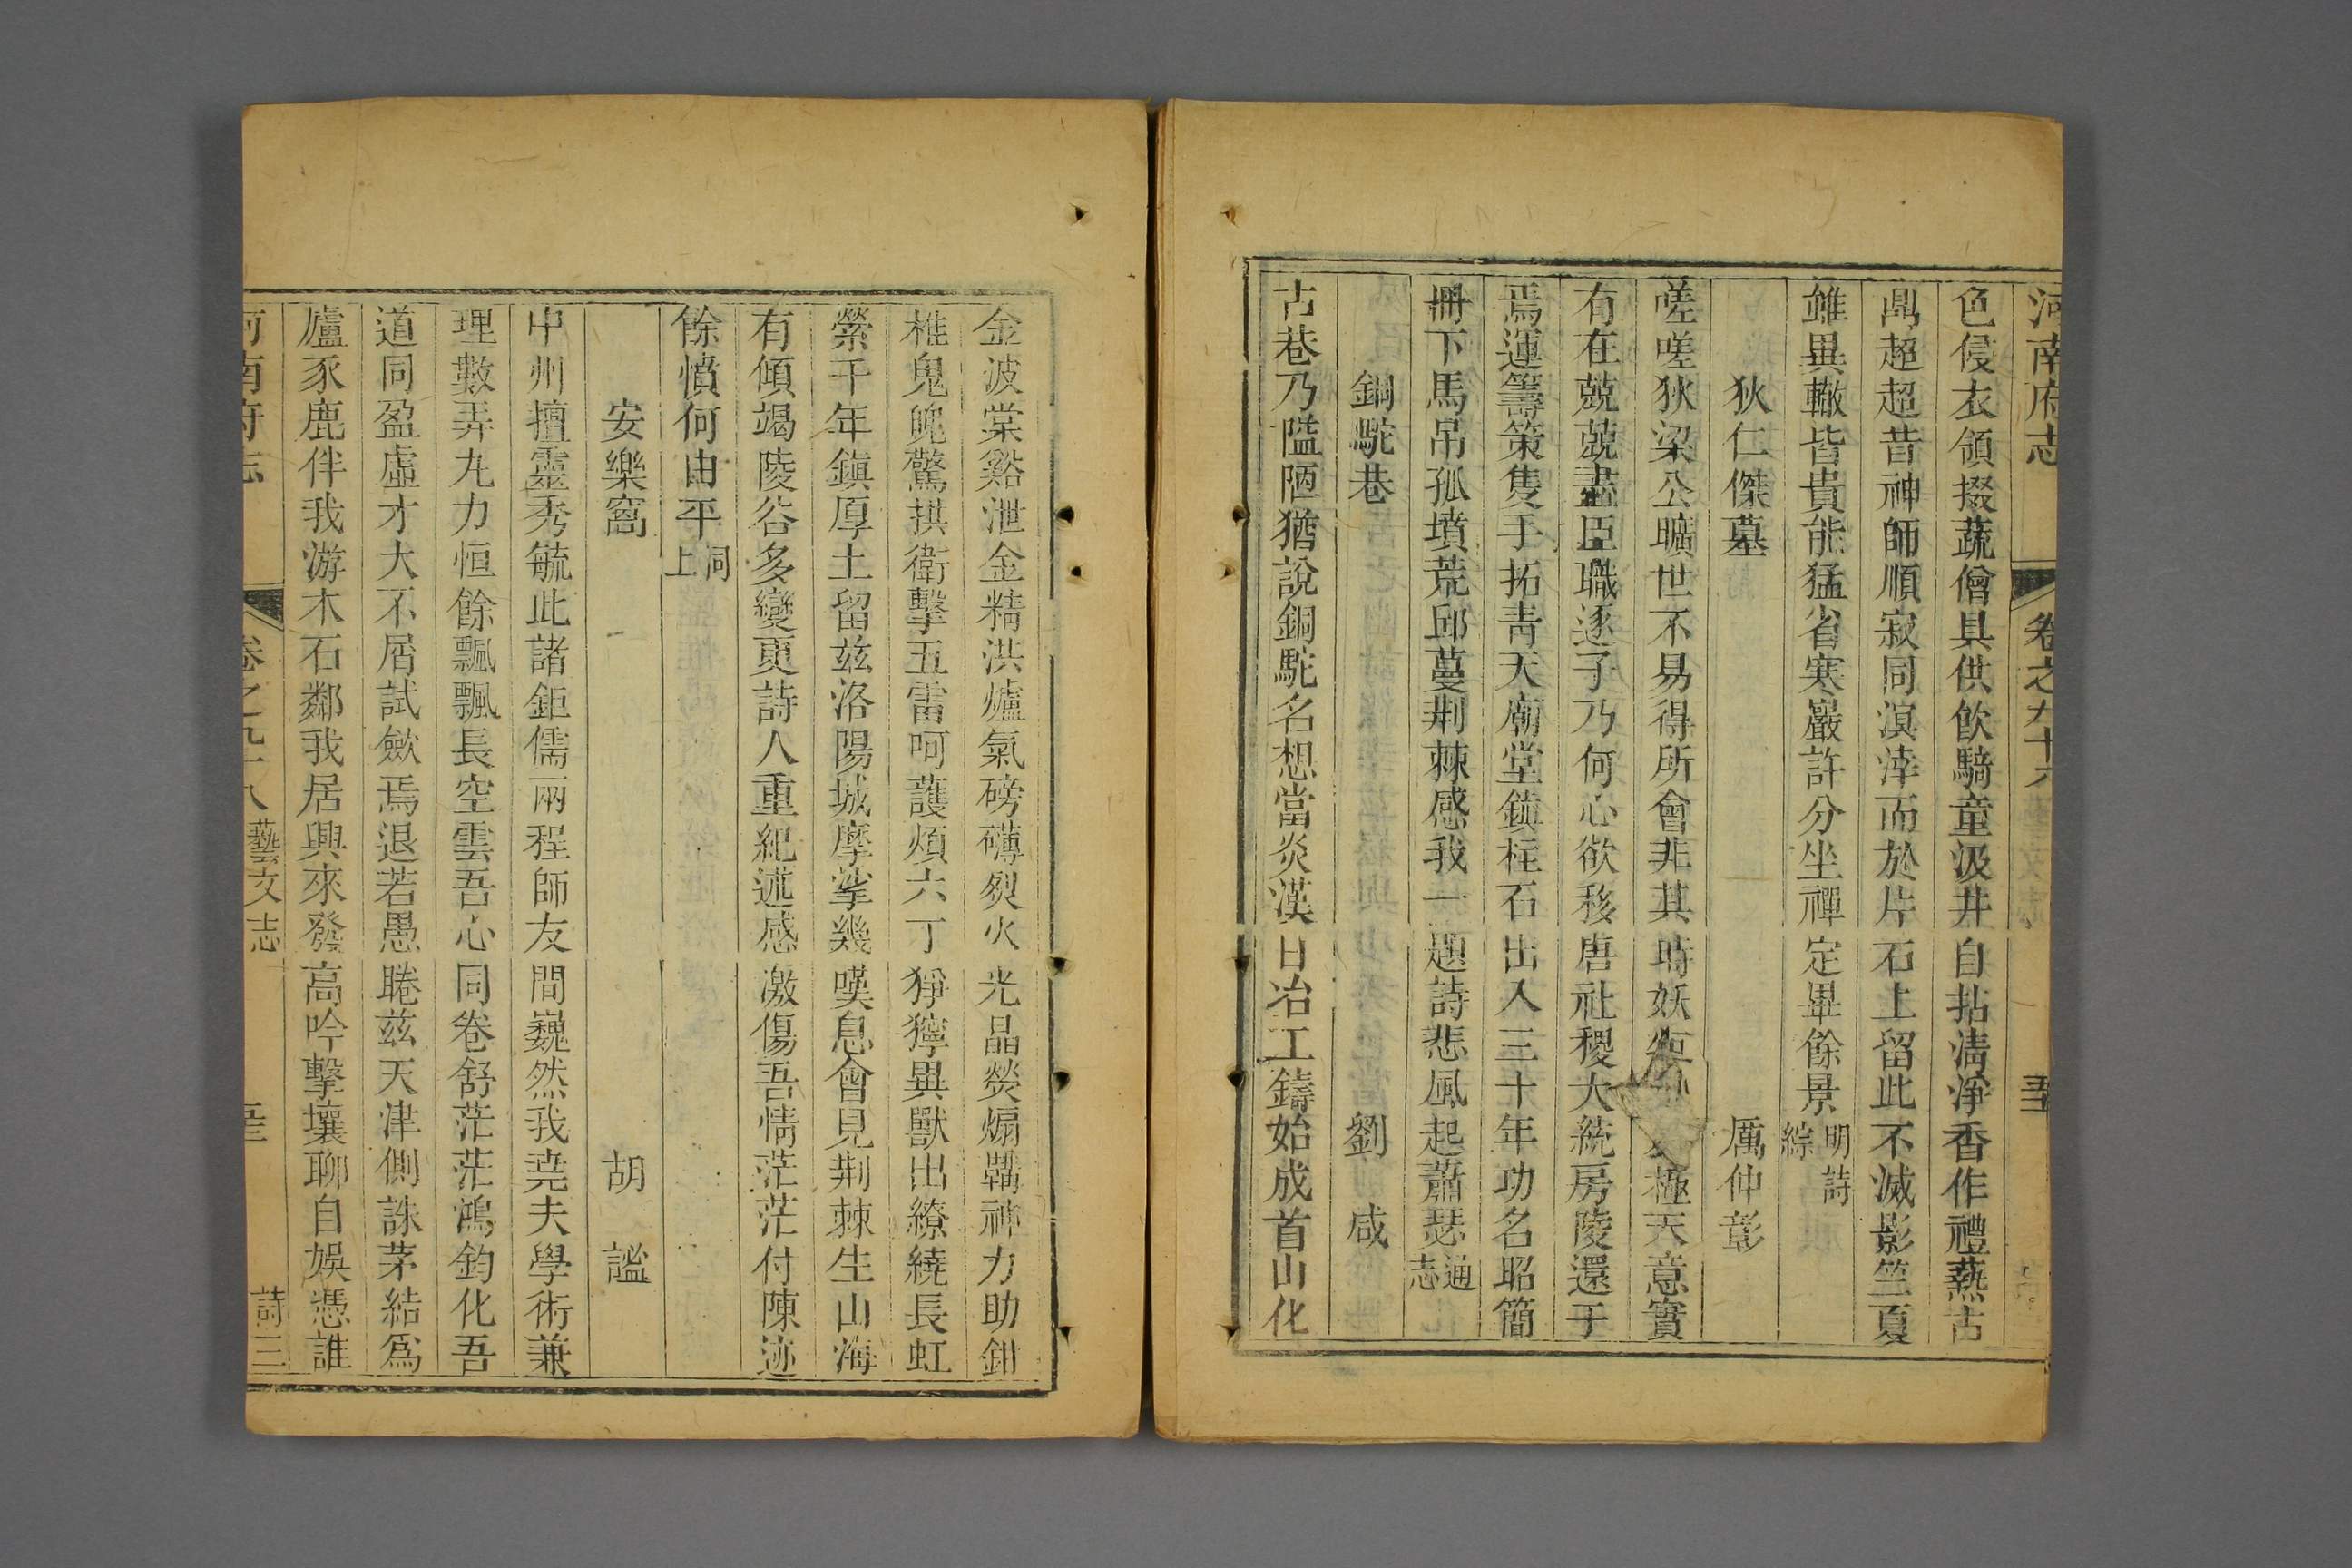 河南府志 卷之九十八 藝文志 至
色侵衣領掇蔬僧具供飲騎童汲井自拈淸淨香作禮爇古
鼎超超昔神師順寂同溟涬而於片石上留此不滅影竺夏
雖異轍皆貴能猛省寒巖許分坐禪定畢餘景明詩綜
狄仁傑墓 厲仲彰
嗟嗟狄梁公曠世不易得所會非其時妖極天意實
有在兢兢盡臣職逐子乃何心欲移唐社稷大統房陵還于
焉運籌策隻手拓靑天廟堂鎮柱石出入三十年功名昭簡
冊下馬吊孤墳荒邱蔓荆棘感我一題詩悲風起蕭瑟通志
銅駝巷 劉咸
古巷乃隘陋猶說銅駝名想當炎漢日冶工鑄始成首山化
金波棠谿泄金精洪爐氣磅礴裂火光晶熒煽鞴神力助鉗
椎鬼魄驚拱衛擊五雷呵護煩六丁猙獰異獸出繚繞長虹
縈千年鎮厚土留兹洛陽城摩挲幾嘆息會見荆棘生山海
有傾竭陵谷多變更詩人重紀述感激傷吾情茫茫付陳迹
餘憤何由平同上
安樂窩 胡謐
中州擅靈秀毓此諸鉅儒兩程師友間巍然我堯夫學術兼
理數弄丸力恒餘飄飄長空雲吾心同卷舒茫茫鴻鈞化吾
道同盈虛才大不屑試歛焉退若愚睠兹天津側誅茅結爲
廬豕鹿伴我游木石鄰我居興來發高吟擊壤聊自娛憑誰
河南府志 卷之九十八 藝文志 詩三